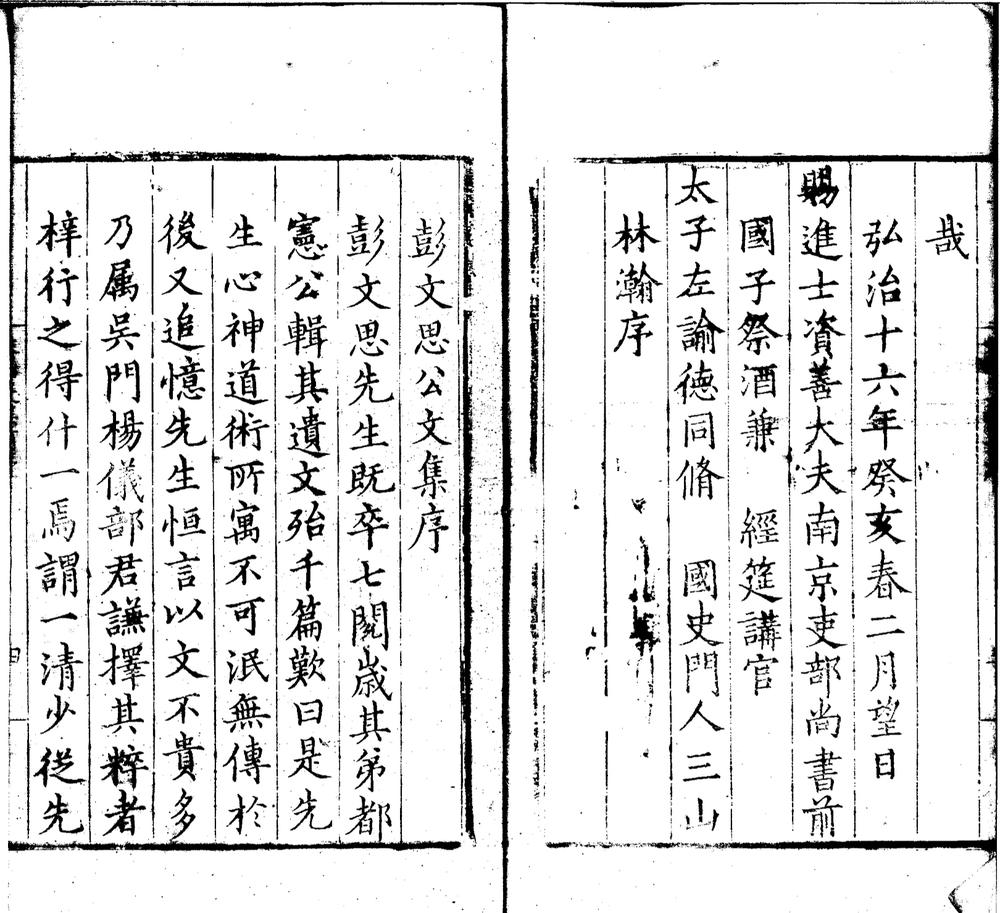 哉
弘治十六年癸亥春二月望日
賜進士資善大夫南京吏部尚書前
國子祭酒兼　經筵講官
太子左諭德同脩　國史門人三山
林瀚序
彭文思公文集序
彭文思先生既卒七閱歲其弟都
憲公輯其遺文殆千篇歎曰是先
生心神道術所寓不可泯無傳於
後又追憶先生恒言以文不貴多
乃属吴門楊儀部君謙擇其粹者
梓行之得什一焉謂一清少從先